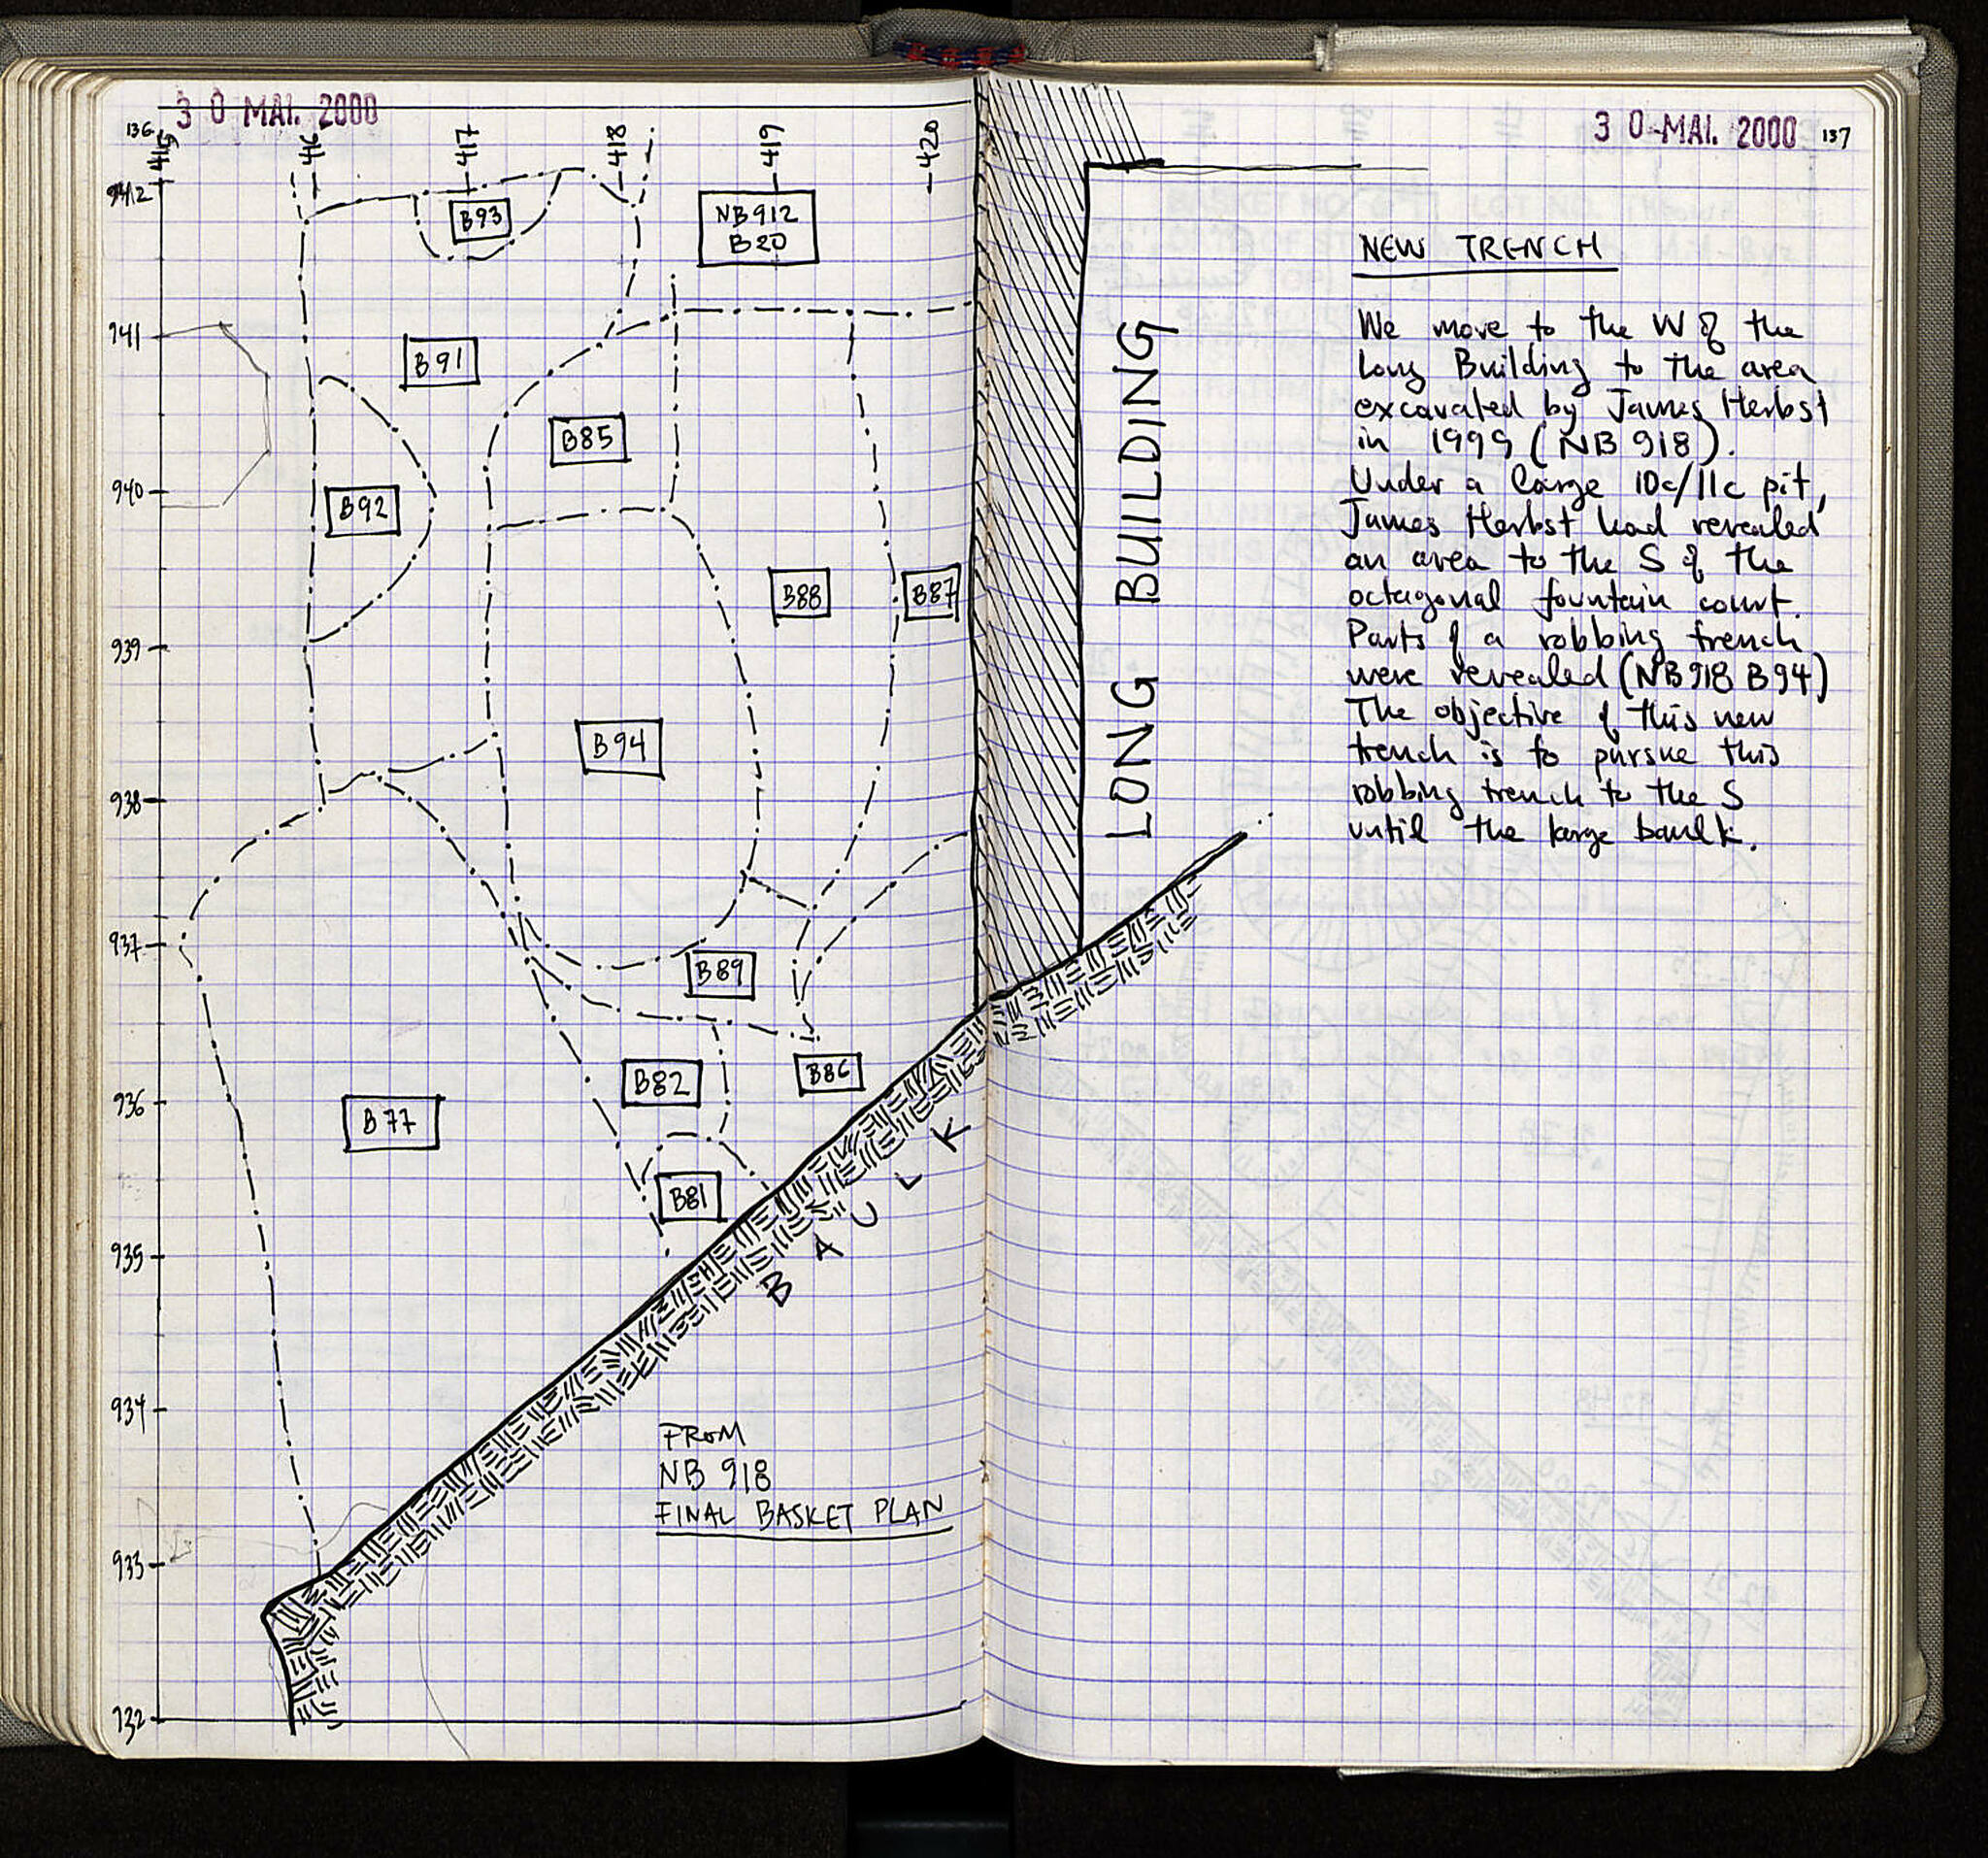 30 MAI. 2000
136
415
416
417
418
419
420
942
B93
NB912
B20
941
B91
B85
940
B92
B88
B87
939
B94
938
937
B89
B82
B86
936
B77
B81
935
BAULK
934
FROM
NB 918
FINAL BASKET PLAN
933
932
30 MAI. 2000
137
LONG BUILDING
NEW TRENCH
We move to the W of the
Long Building to the area
excavated by James Herbst
in 1999 (NB 918).
Under a large 10c/11c pit,
James Herbst had revealed
an area to the S of the
octagonal fountain court.
Parts of a robbing trench
were revealed (NB 918 B94)
The objective of this new
trench is to pursue this
robbing trench to the S
until the large baulk.